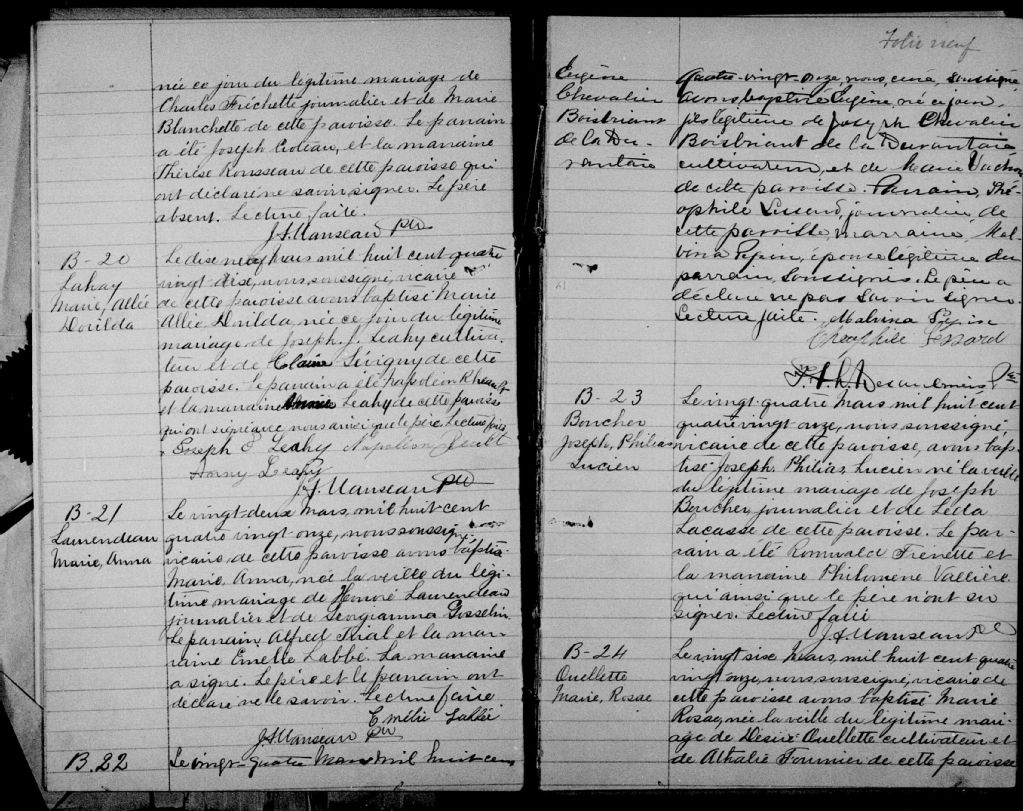 née ce jour du légitime mariage de
Charles Fréchette journalier et de Marie
Blanchette de cette paroisse. Le parrain
a été Joseph Croteau, et la marraine
Thérèse Rousseau de cette paroisse qui
ont déclaré ne savoir signer. Le père
absent. Lecture faite.
J. S. Manseau Ptre
B-20
Lahay
Marie, Allée
Dorilda
Le dise neuf Mars mil huit cent quatre
vingt dise, nous, soussigné, vicaire
de cette paroisse avons baptisé Marie
Allée Dorilda, née ce jour du légitime
mariage de Joseph. J. Leahy cultiva-
teur et de Claire Sévigny de cette
paroisse. Le parrain a été Napoléon Rheault
et la marraine Annie Leahy de cette paroisse
qui ont signé avec nous ainsi que le père. Lecture faite.
Joseph J Leahy Napoléon Reault
Leahy
J. S. Manseau Ptre
B-21
Laurendeau
Marie, Anna
Le vingt deux Mars, mil huit cent
quatre vingt onze, nous soussigné,
vicaire de cette paroisse avons baptisé
Marie, Anna, née la veille du légi-
time mariage de Honoré Laurendeau
journalier et de Georgianna Gosselin
Le parrain Alfred Trial et la mar-
raine Emélie Labbé. La marraine
a signé. Le père et le parrain ont
déclaré ne le savoir. Lecture faite
Emélie Labbé
J. S. Manseau Ptre
B.22
Le vingt-quatre Mars mil huit cent
Folio neuf
Eugène
Chevalier
Boisbriant
de la Du-
rantaie
Quatre-vingt-onze, nous, curé, soussigné
avons, baptisé Eugène, né ce jour,
fils légitime de Joseph Chevalier
Boisbriant de la Durantaie
cultivateur, et de Marie Vachon
de cette paroisse. Parrain, Thé-
ophile Lessard, journalier, de
cette paroisse, marraine, Mal-
vina Pepin, épouse légitime du
parrain, soussignés. Le père a
déclaré ne pas savoir signer.
Lecture faite. Malvina Pepin
Theophile Lessard
F. X. L. Desaulniers Ptre
B-23
Boucher
Joseph, Philias
Lucien
Le vingt-quatre Mars mil huit cent
quatre vingt onze, nous soussigné,
vicaire de cette paroisse, avons bap-
tisé Joseph, Philias, Lucien né la veille
du légitime mariage de Joseph
Boucher journalier et de Léda
Lacasse de cette paroisse. Le par-
rain a été Romuald Frenette et
la marraine Philomène Vallière
qui ainsi que le père n'ont su
signer. Lecture faite
J. S. Manseau Ptre
B-24
Ouellette
Marie, Rosae
Le vingt sise Mars, mil huit cent quatre
vingt onze, nous, soussigné, vicaire de
cette paroisse avons baptisé Marie
Rosae, née la veille du légitime mari-
age de Désiré Ouellette cultivateur et
de Athalie Fournier de cette paroisse